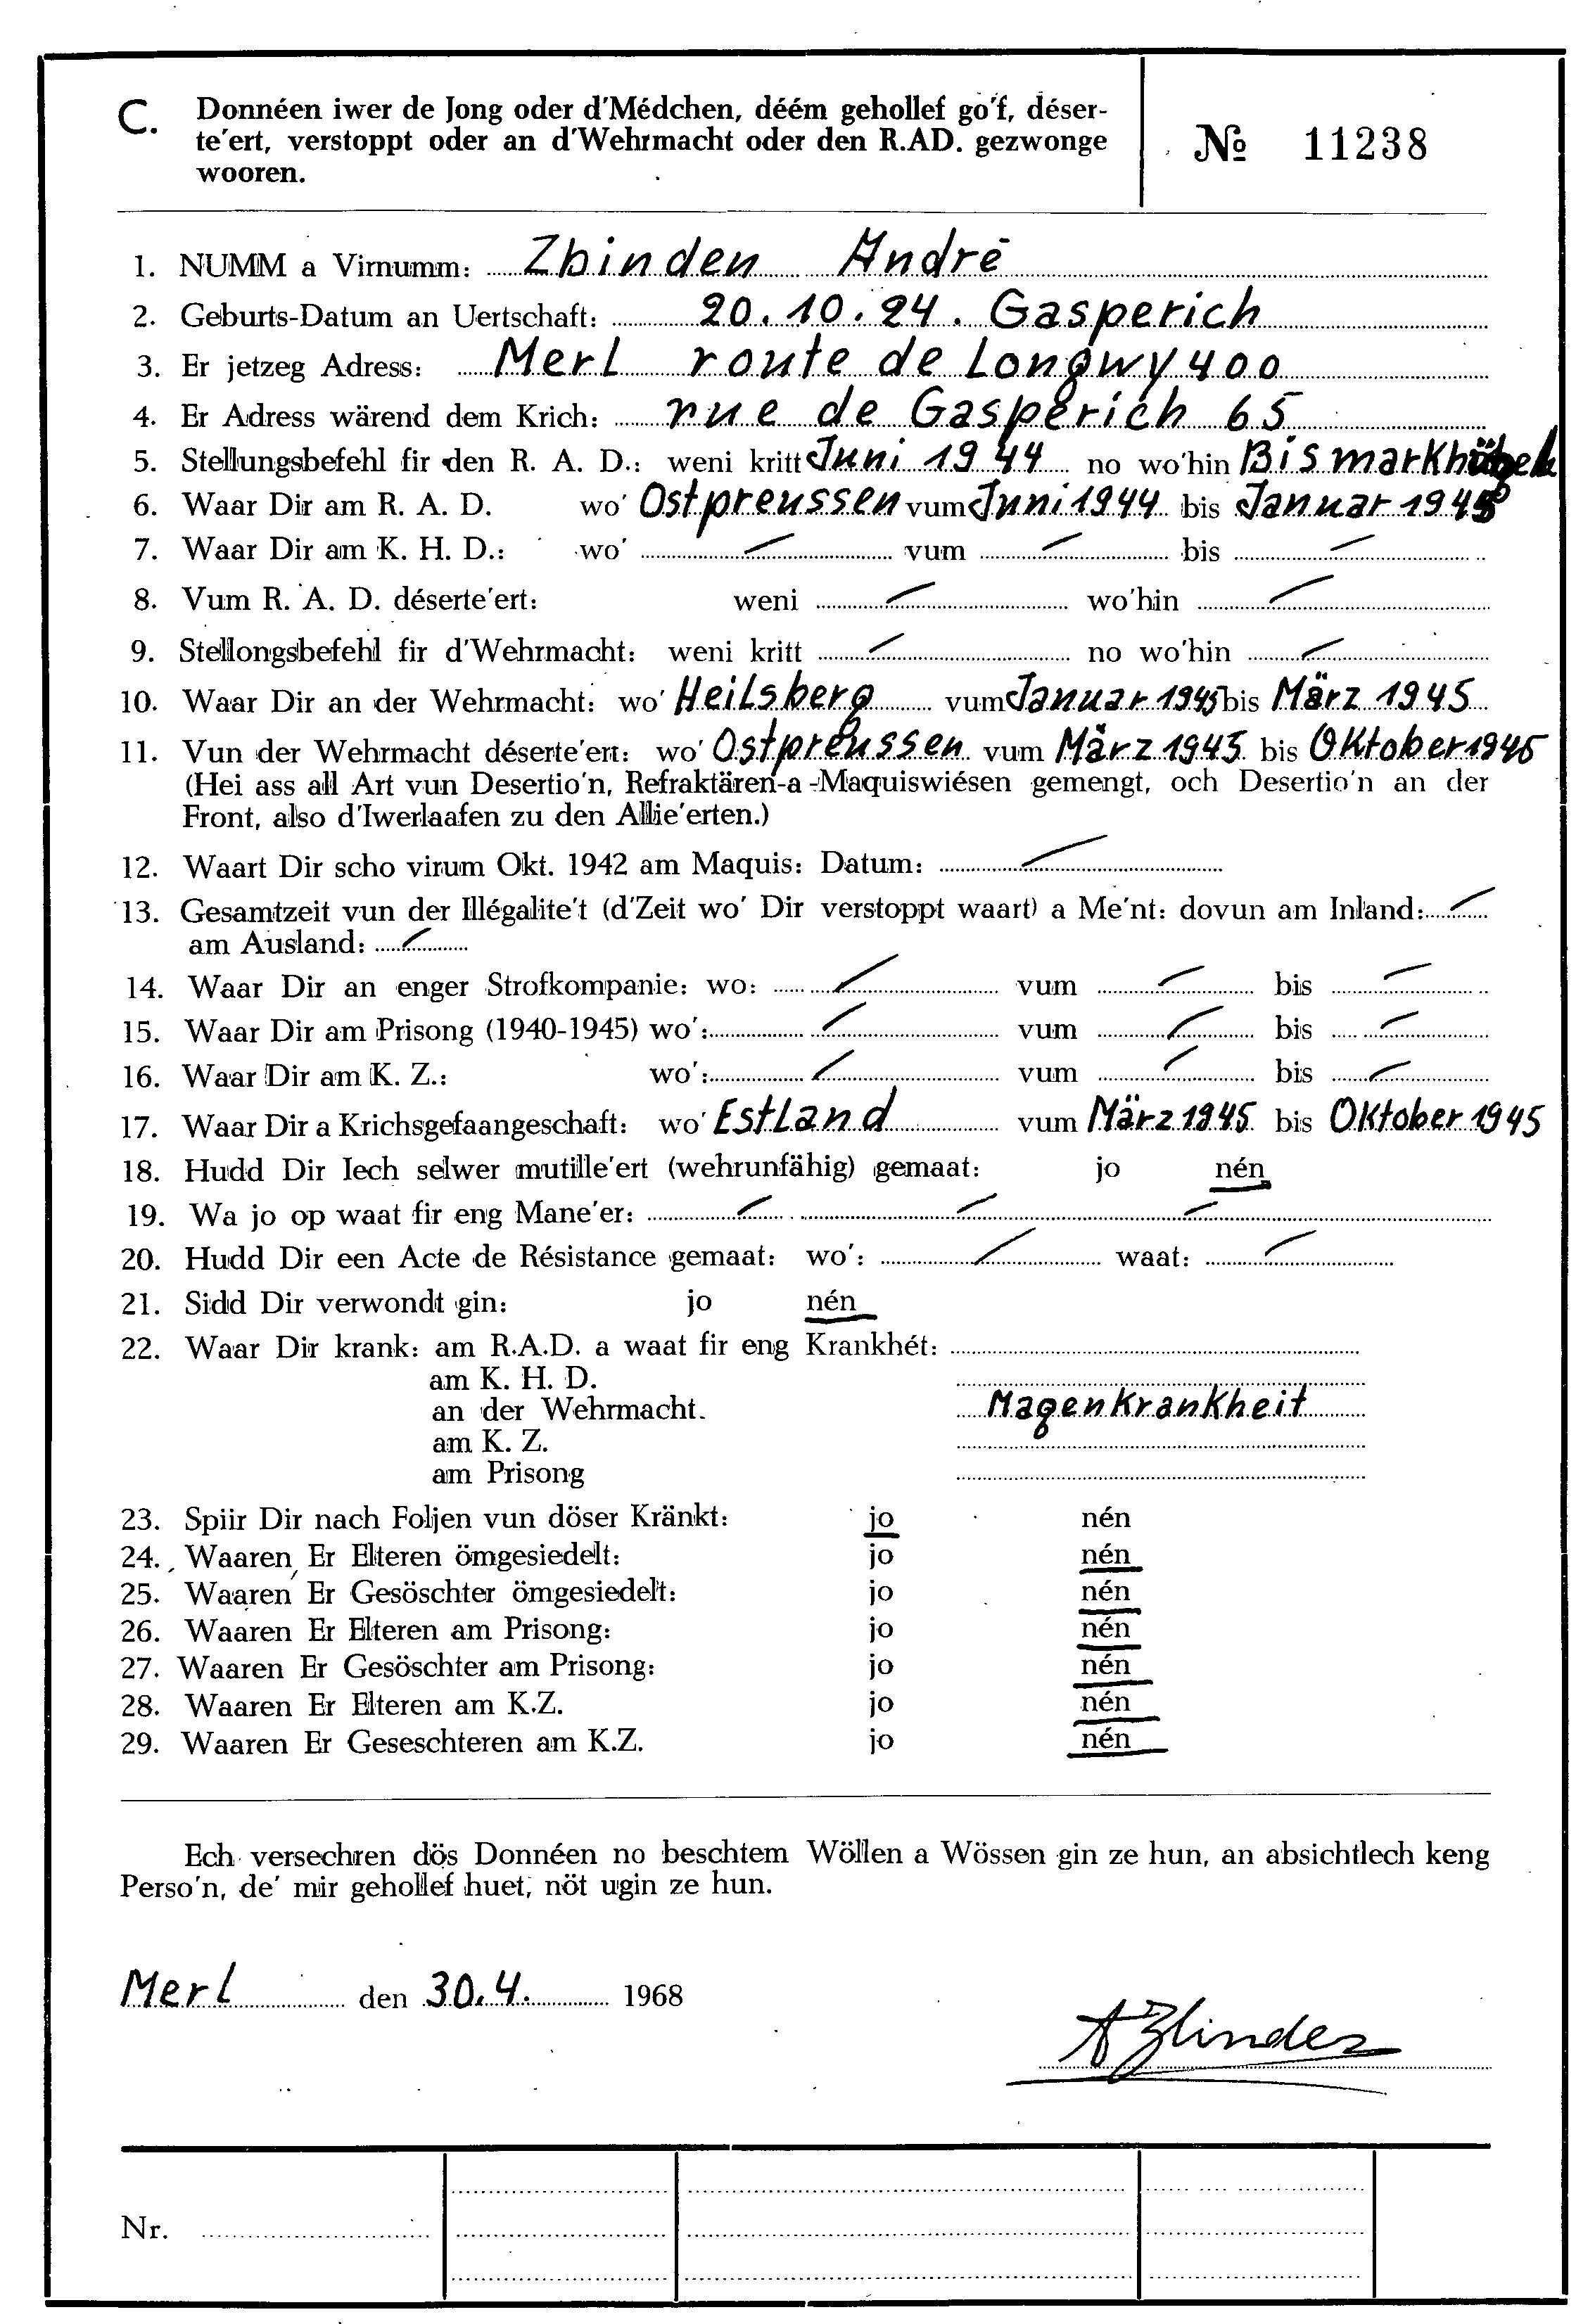 C. Donnéen iwer de Jong oder d'Médchen, déém gehollef go'f, déser-
te'ert, verstoppt oder an d'Wehrmacht oder den R.AD. gezwonge
wooren.
№ 11238
1. NUMM a Virnumm: Zbinden André
2. Geburts-Datum an Uertschaft: 20.10.24. Gasperich
3. Er jetzeg Adress: Merl route de Longwy 400
4. Er Adress wärend dem Krich: rue de Gasperich 65
5. Stellungsbefehl fir den R. A. D.: weni kritt Juni 1944 no wo'hin
6. Waar Dir am R. A. D. wo' Ostpreussen vum Juni 1944 bis Januar 1945
7. Waar Dir am K. H. D.: wo' — vum — bis —
8. Vum R. A. D. déserte'ert: weni — wo'hin —
9. Stellongsbefehl fir d'Wehrmacht: weni kritt — no wo'hin —
10. Waar Dir an der Wehrmacht: wo' Heilsberg vum Januar 1945 bis März 1945
11. Vun der Wehrmacht déserte'ert: wo' Ostpreussen vum März 1945 bis Oktober 1945
(Hei ass all Art vun Desertio'n, Refraktären-a-Maquiswiésen gemengt, och Desertio'n an der
Front, also d'Iwerlaafen zu den Allie'erten.)
12. Waart Dir scho virum Okt. 1942 am Maquis: Datum: —
13. Gesamtzeit vun der Illégalite't (d'Zeit wo' Dir verstoppt waart) a Me'nt: dovun am Inland: —
am Ausland: —
14. Waar Dir an enger Strofkompanie: wo: — vum — bis —
15. Waar Dir am Prisong (1940-1945) wo': — vum — bis —
16. Waar Dir am K. Z.: wo': — vum — bis —
17. Waar Dir a Krichsgefaangeschaft: wo' Estland vum März 1945 bis Oktober 1945
18. Hudd Dir Iech selwer mutille'ert (wehrunfähig) gemaat: jo nén
19. Wa jo op waat fir eng Mane'er: — — —
20. Hudd Dir een Acte de Résistance gemaat: wo': — waat: —
21. Sidd Dir verwondt gin: jo nén
22. Waar Dir krank: am R.A.D. a waat fir eng Krankhét:
am K. H. D.
an der Wehrmacht. Magenkrankheit
am K. Z.
am Prisong
23. Spiir Dir nach Foljen vun döser Kränkt: jo nén
24. Waaren Er Elteren ömgesiedelt: jo nén
25. Waaren Er Gesöschter ömgesiedelt: jo nén
26. Waaren Er Elteren am Prisong: jo nén
27. Waaren Er Gesöschter am Prisong: jo nén
28. Waaren Er Elteren am K.Z. jo nén
29. Waaren Er Geseschteren am K.Z. jo nén
Ech versechren dös Donnéen no beschtem Wöllen a Wössen gin ze hun, an absichtlech keng
Perso'n, de' mir gehollef huet, nöt ugin ze hun.
Merl den 30.4. 1968
A Zbinden
Nr.